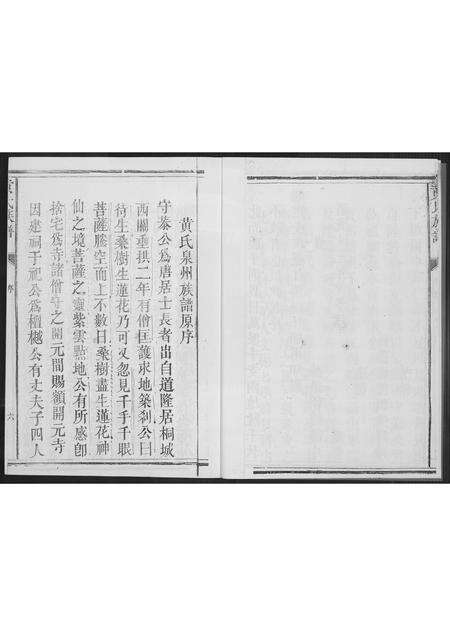 黄氏族譜
黄氏泉州族譜原序
守泰公為唐居士長者出自道隆居桐城
西關垂拱二年有僧匡護求地築剎公曰
待生桑樹生蓮花乃可又忽見千手千眼
菩薩騰空而上不數日桑樹盡生蓮花神
仙之境菩薩之靈紫雲點地公有所感即
捨宅為寺諸僧守之開元間賜額開元寺
因建祠于祀公為檀樾公有丈夫子四人
氏族譜
序
六